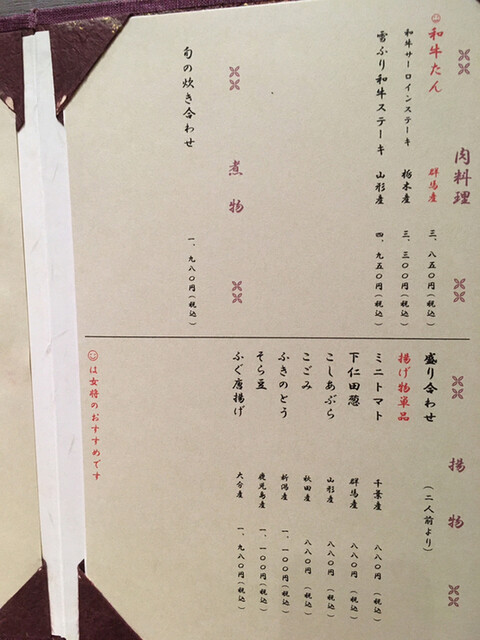 肉料理
☺和牛たん 群馬産 三、八五〇円(税込)
和牛サーロインステーキ 栃木産 三、三〇〇円(税込)
雪ふり和牛ステーキ 山形産 四、九五〇円(税込)
煮物
旬の炊き合わせ 一、九八〇円(税込)
揚物
盛り合わせ (二人前より)
揚げ物単品
ミニトマト 千葉産 八八〇円(税込)
下仁田葱 群馬産 八八〇円(税込)
こしあぶら 山形産 八八〇円(税込)
こごみ 秋田産 八八〇円(税込)
ふきのとう 新潟産 一、一〇〇円(税込)
そら豆 鹿児島産 一、一〇〇円(税込)
ふぐ唐揚げ 大分産 一、九八〇円(税込)
☺は女将のおすすめです